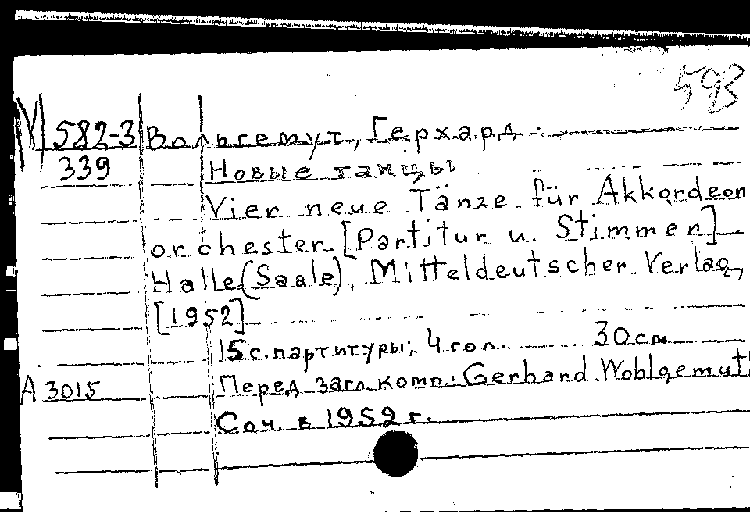 593
М 582-3 Вольгемут, Герхард.
339 Новые танцы
Vier neue Tänze für Akkordeon
orchester. [Partitur u. Stimmen]
Halle (Saale), Mitteldeutscher Verlag,
[1952]
15 с. партитуры; 4 гол. 30 см
А 3015 Перед загл. комп.: Gerhard Wohlgemuth
Соч. в 1952 г.